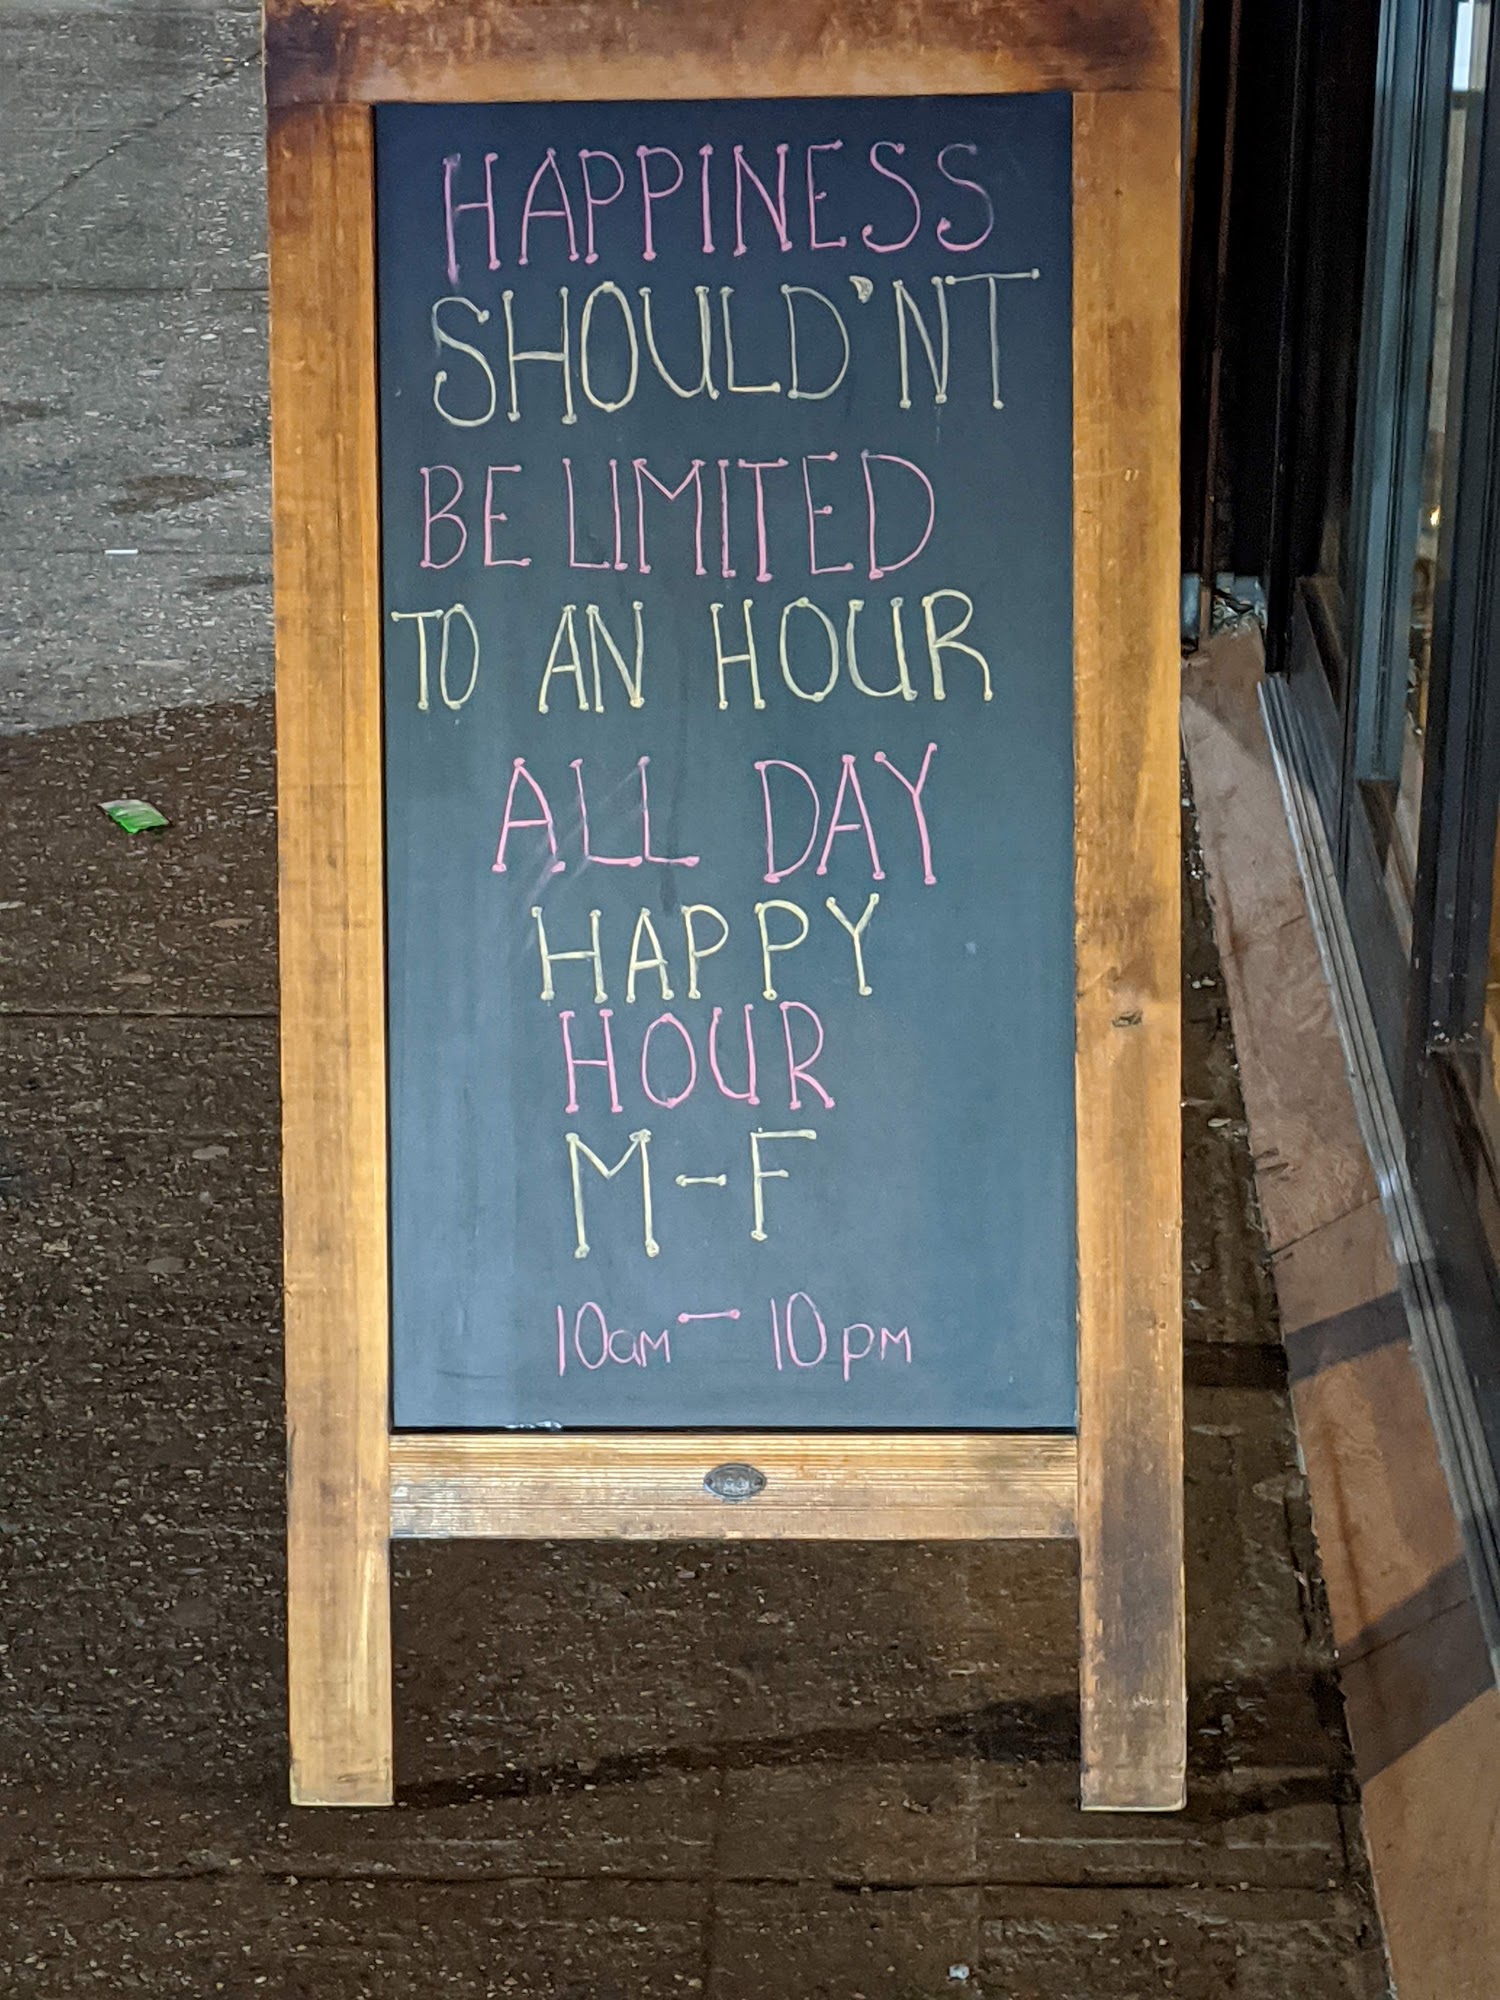 HAPPINESS
SHOULD'NT
BE LIMITED
TO AN HOUR
ALL DAY
HAPPY
HOUR
M-F
10am - 10pm